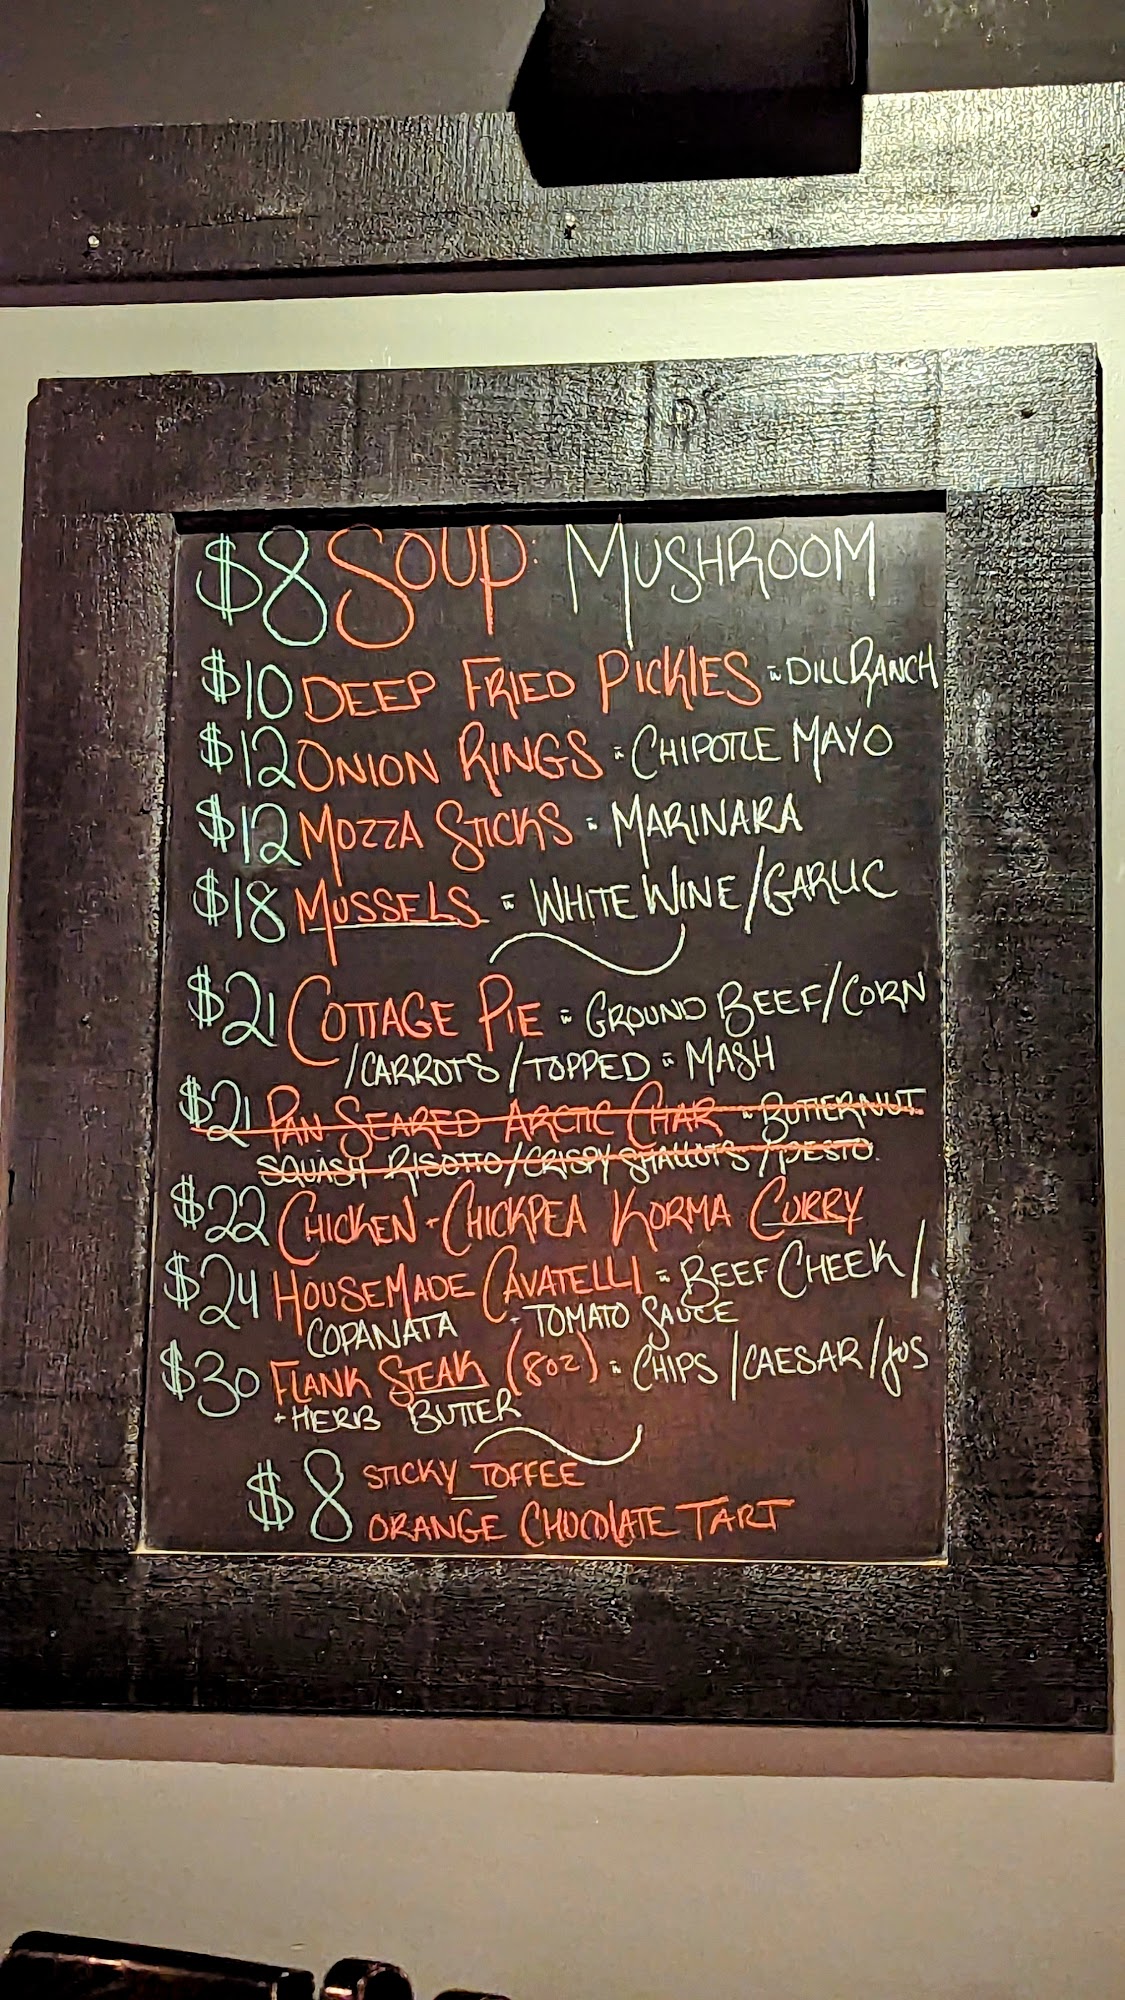 $8 SOUP: MUSHROOM
$10 DEEP FRIED PICKLES - DILL RANCH
$12 ONION RINGS - CHIPOTLE MAYO
$12 MOZZA STICKS - MARINARA
$18 MUSSELS - WHITE WINE/GARLIC
$21 COTTAGE PIE - GROUND BEEF/CORN
/CARROTS/TOPPED - MASH
$21 PAN SEARED ARCTIC CHAR - BUTTERNUT
SQUASH RISOTTO/CRISPY SHALLOTS/PESTO
$22 CHICKEN + CHICKPEA KORMA CURRY
$24 HOUSEMADE CAVATELLI - BEEF CHEEK/
COPANATA + TOMATO SAUCE
$30 FLANK STEAK (8oz) - CHIPS/CAESAR/JUS
+ HERB BUTTER
$8 STICKY TOFFEE
ORANGE CHOCOLATE TART